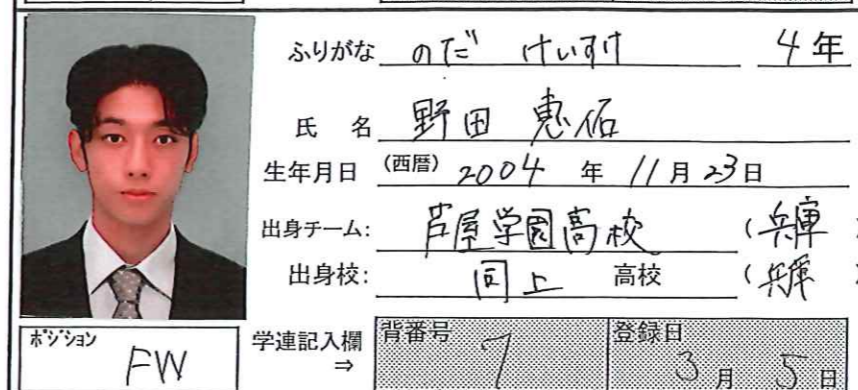 ふりがな のだ けいすけ 4年
氏 名 野田 恵佑
生年月日 (西暦) 2004 年 11月 23日
出身チーム: 芦屋学園高校 (兵庫
出身校: 同上 高校 (兵庫
ポジション FW
学連記入欄 ⇒
背番号 7
登録日 3月 5日